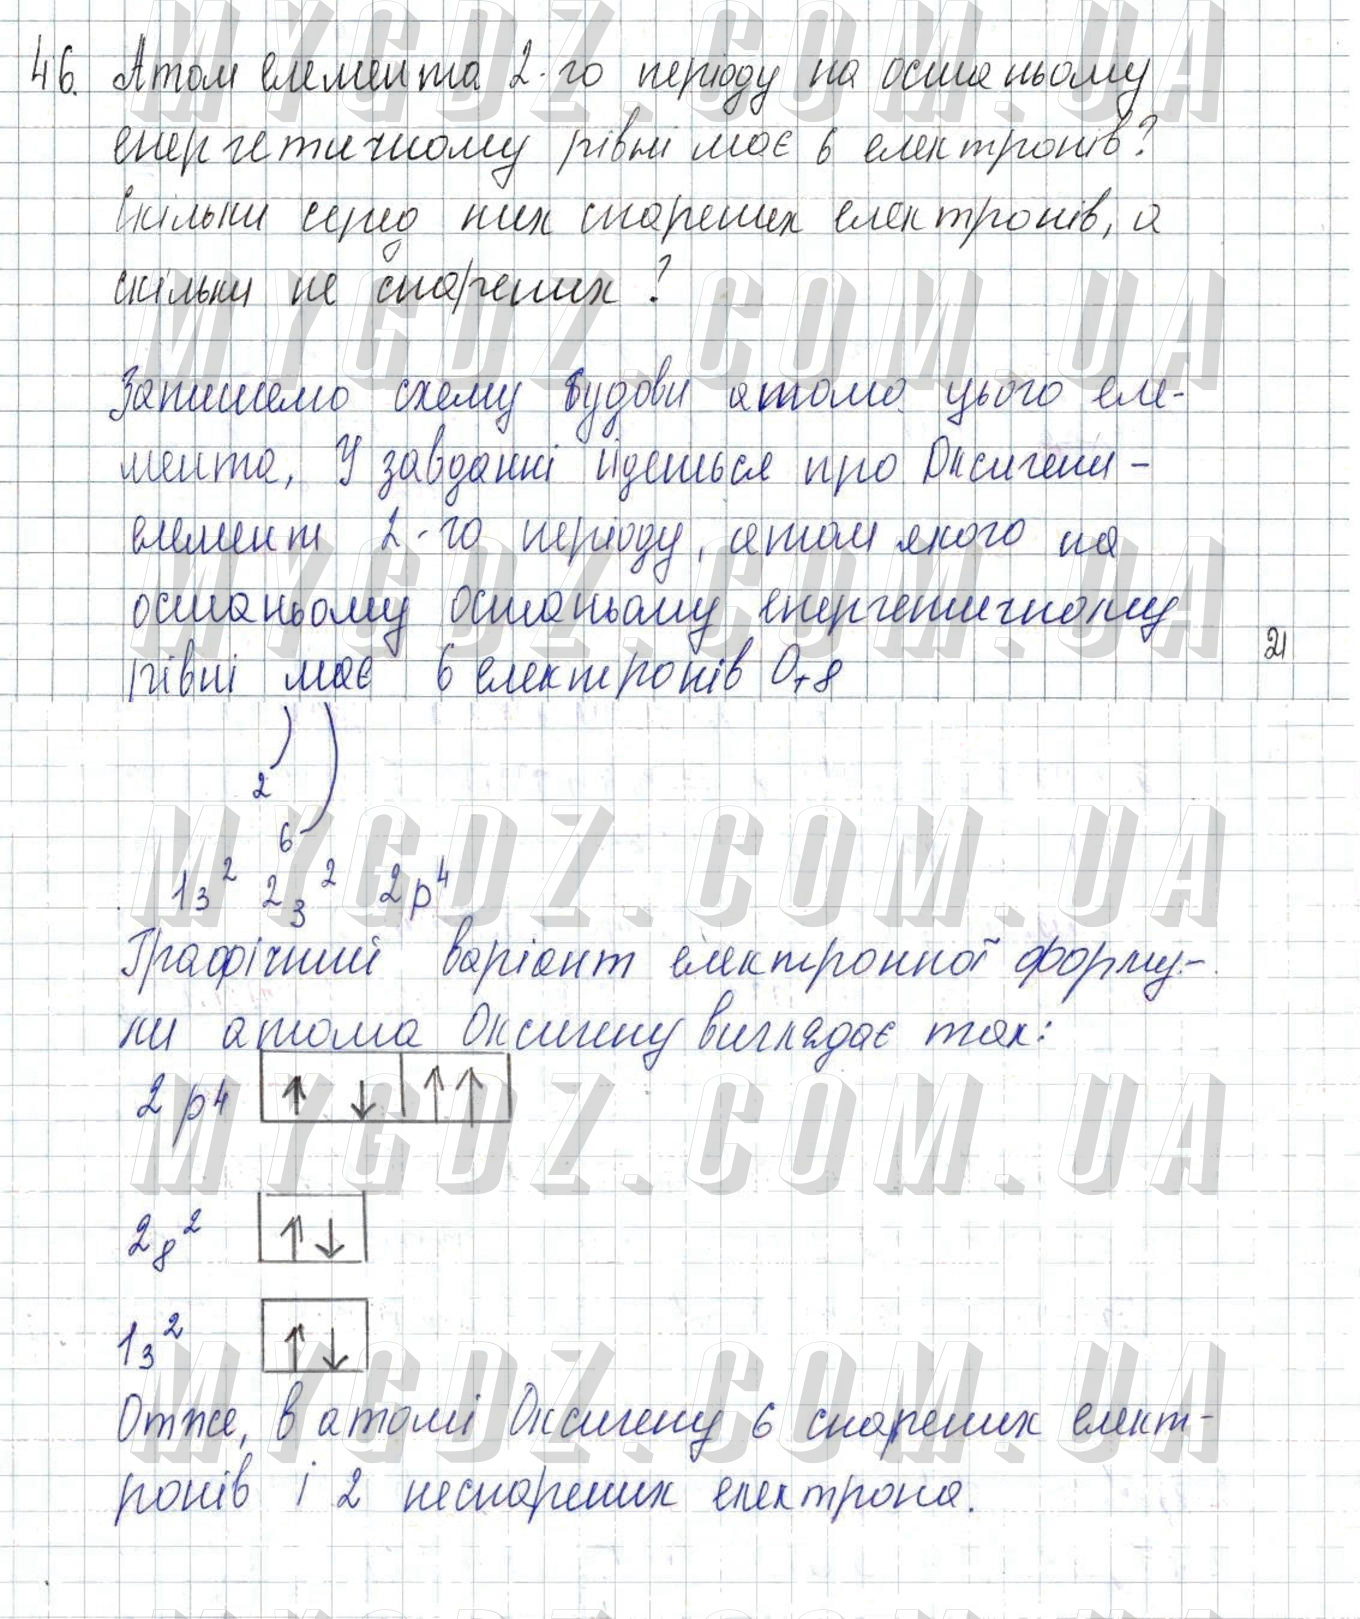 46. Атом елемента 2-го періоду на останьому
енергетичному рівні має 6 електронів?
Скільки серед них спарених електронів, а
скільки не спарених?
Запишемо схему будови атома цього еле-
мента, У завданні йдеться про Оксиген -
елемент 2-го періоду, атом якого на
останьому останьому енергетичному
рівні має 6 електронів O+8
21
2
6
1s² 2s² 2p⁴
Графічний варіант електронної форму-
ли атома Оксигену виглядає так:
2p4 ↑ ↓ ↑ ↑
2s² ↑↓
1s² ↑↓
Отже, в атомі Оксигену 6 спарених елект-
ронів і 2 неспарених електрона.
MYGDZ.COM.UA
MYGDZ.COM.UA
MYGDZ.COM.UA
MYGDZ.COM.UA
MYGDZ.COM.UA
MYGDZ.COM.UA